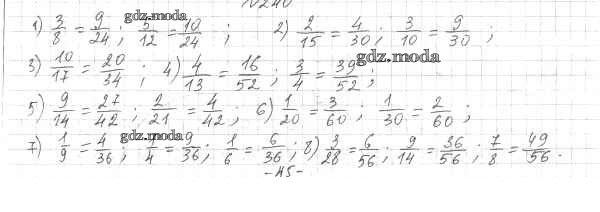 № 240
1) 3/8 = 9/24; 5/12 = 10/24; 2) 2/15 = 4/30; 3/10 = 9/30;
3) 10/17 = 20/34; 4) 4/13 = 16/52; 3/4 = 39/52;
5) 9/14 = 27/42; 2/21 = 4/42; 6) 1/20 = 3/60; 1/30 = 2/60;
7) 1/9 = 4/36; 1/4 = 9/36; 1/6 = 6/36; 8) 3/28 = 6/56; 9/14 = 36/56; 7/8 = 49/56.
-45-
gdz.moda
gdz.moda
gdz.moda